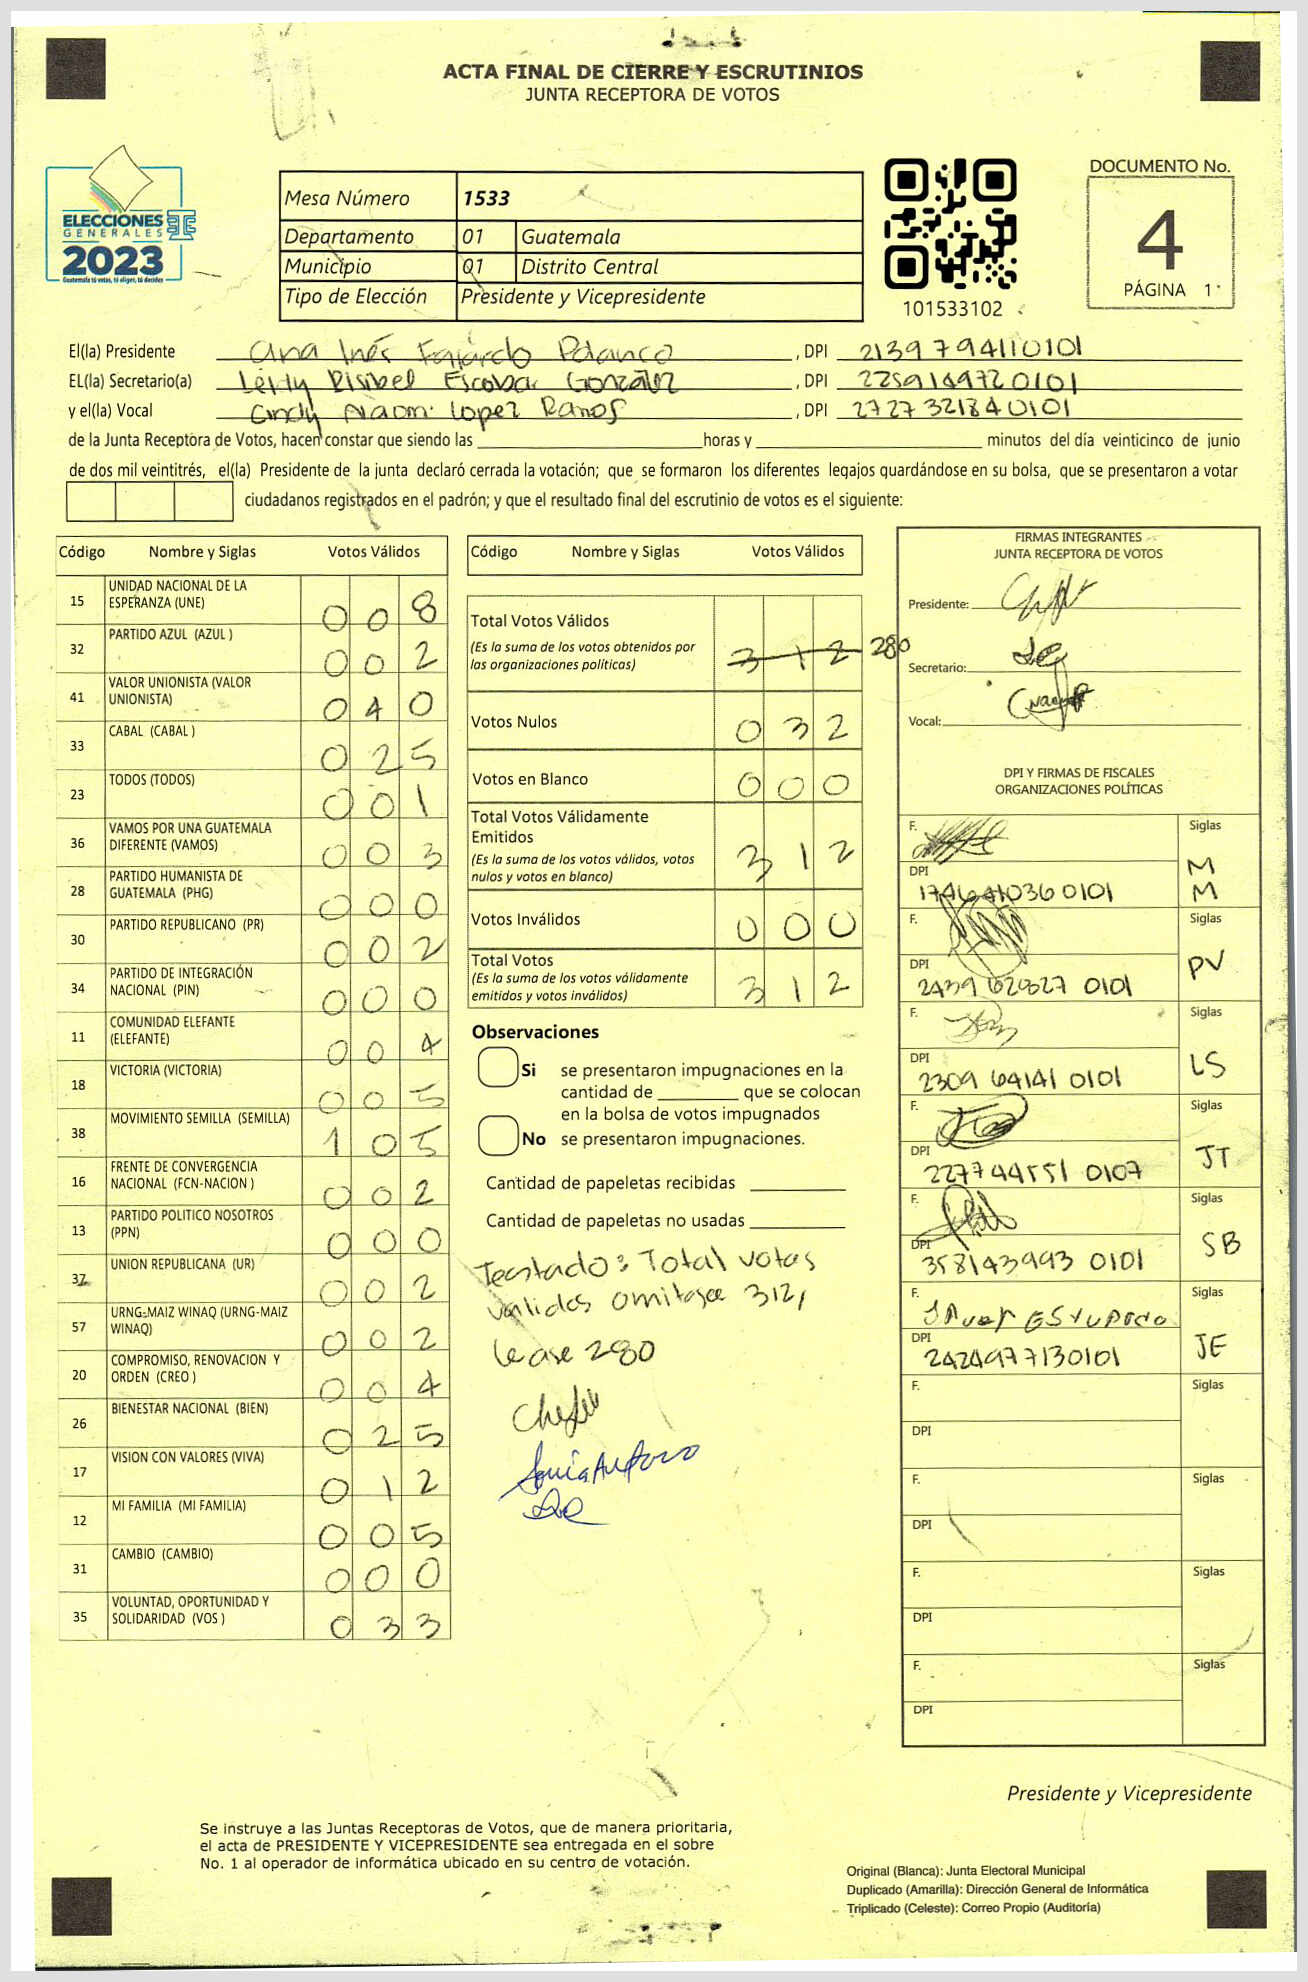 ACTA FINAL DE CIERRE Y ESCRUTINIOS
JUNTA RECEPTORA DE VOTOS
ELECCIONES
GENERALES
2023
Guatemala tú votas, tú eliges, tú decides
Mesa Número 1533
Departamento 01 Guatemala
Municipio 01 Distrito Central
Tipo de Elección Presidente y Vicepresidente
101533102
DOCUMENTO No.
4
PÁGINA 1
El(la) Presidente Ana Inés Fajardo Polanco, DPI 2139794110101
EL(la) Secretario(a) Leidy Risibel Escobar González, DPI 2259149720101
y el(la) Vocal Cindy Naomi Lopez Ramos, DPI 2727321840101
de la Junta Receptora de Votos, hacen constar que siendo las ____ horas y ____ minutos del día veinticinco de junio
de dos mil veintitrés, el(la) Presidente de la junta declaró cerrada la votación; que se formaron los diferentes legajos quardándose en su bolsa, que se presentaron a votar
ciudadanos registrados en el padrón; y que el resultado final del escrutinio de votos es el siguiente:
Código Nombre y Siglas Votos Válidos
15 UNIDAD NACIONAL DE LA ESPERANZA (UNE) 008
32 PARTIDO AZUL (AZUL ) 002
41 VALOR UNIONISTA (VALOR UNIONISTA) 040
33 CABAL (CABAL ) 025
23 TODOS (TODOS) 001
36 VAMOS POR UNA GUATEMALA DIFERENTE (VAMOS) 003
28 PARTIDO HUMANISTA DE GUATEMALA (PHG) 000
30 PARTIDO REPUBLICANO (PR) 002
34 PARTIDO DE INTEGRACIÓN NACIONAL (PIN) 000
11 COMUNIDAD ELEFANTE (ELEFANTE) 004
18 VICTORIA (VICTORIA) 005
38 MOVIMIENTO SEMILLA (SEMILLA) 105
16 FRENTE DE CONVERGENCIA NACIONAL (FCN-NACION ) 002
13 PARTIDO POLITICO NOSOTROS (PPN) 000
37 UNION REPUBLICANA (UR) 002
57 URNG-MAIZ WINAQ (URNG-MAIZ WINAQ) 002
20 COMPROMISO, RENOVACION Y ORDEN (CREO ) 004
26 BIENESTAR NACIONAL (BIEN) 025
17 VISION CON VALORES (VIVA) 012
12 MI FAMILIA (MI FAMILIA) 005
31 CAMBIO (CAMBIO) 000
35 VOLUNTAD, OPORTUNIDAD Y SOLIDARIDAD (VOS ) 033
Código Nombre y Siglas Votos Válidos
Total Votos Válidos
(Es la suma de los votos obtenidos por
las organizaciones políticas) 312 280
Votos Nulos 032
Votos en Blanco 000
Total Votos Válidamente
Emitidos
(Es la suma de los votos válidos, votos
nulos y votos en blanco) 312
Votos Inválidos 000
Total Votos
(Es la suma de los votos válidamente
emitidos y votos inválidos) 312
Observaciones
Si se presentaron impugnaciones en la
cantidad de ____ que se colocan
en la bolsa de votos impugnados
No se presentaron impugnaciones.
Cantidad de papeletas recibidas
Cantidad de papeletas no usadas
Testado: Total votos
validos omitase 312,
lease 280
FIRMAS INTEGRANTES
JUNTA RECEPTORA DE VOTOS
Presidente:
Secretario:
Vocal:
DPI Y FIRMAS DE FISCALES
ORGANIZACIONES POLÍTICAS
F. Siglas
DPI 1746410360101 MM
F. Siglas
DPI 2439 62827 0101 PV
F. Siglas
DPI 2309 64141 0101 LS
F. Siglas
DPI 227744551 0107 JT
F. Siglas
DPI 358143993 0101 SB
F. Siglas
DPI 2424977130101 JE
F. Siglas
DPI
F. Siglas
DPI
F. Siglas
DPI
F. Siglas
DPI
Presidente y Vicepresidente
Se instruye a las Juntas Receptoras de Votos, que de manera prioritaria,
el acta de PRESIDENTE Y VICEPRESIDENTE sea entregada en el sobre
No. 1 al operador de informática ubicado en su centro de votación.
Original (Blanca): Junta Electoral Municipal
Duplicado (Amarilla): Dirección General de Informática
Triplicado (Celeste): Correo Propio (Auditoría)